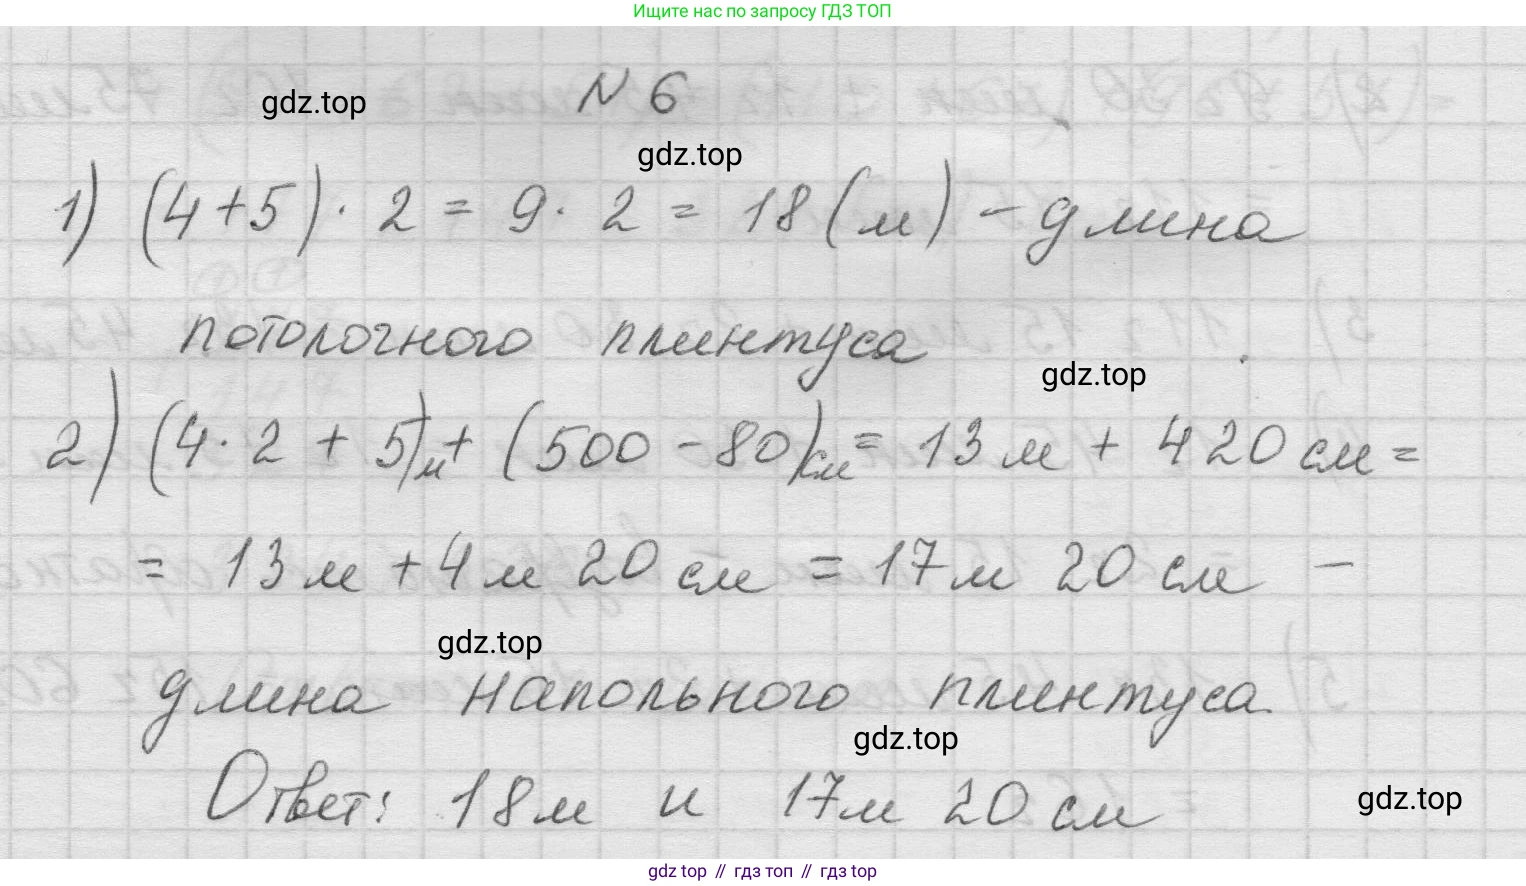 Ищите нас по запросу ГДЗ ТОП
N 6
gdz.top
gdz.top
1) (4+5) · 2 = 9 · 2 = 18 (м) – длина
потолочного плинтуса
gdz.top
2) (4 · 2 + 5)м + (500 – 80)см = 13 м + 420 см =
= 13 м + 4 м 20 см = 17 м 20 см –
gdz.top
длина напольного плинтуса.
gdz.top
Ответ: 18 м и 17 м 20 см
gdz.top
gdz.top // гдз топ // гдз top